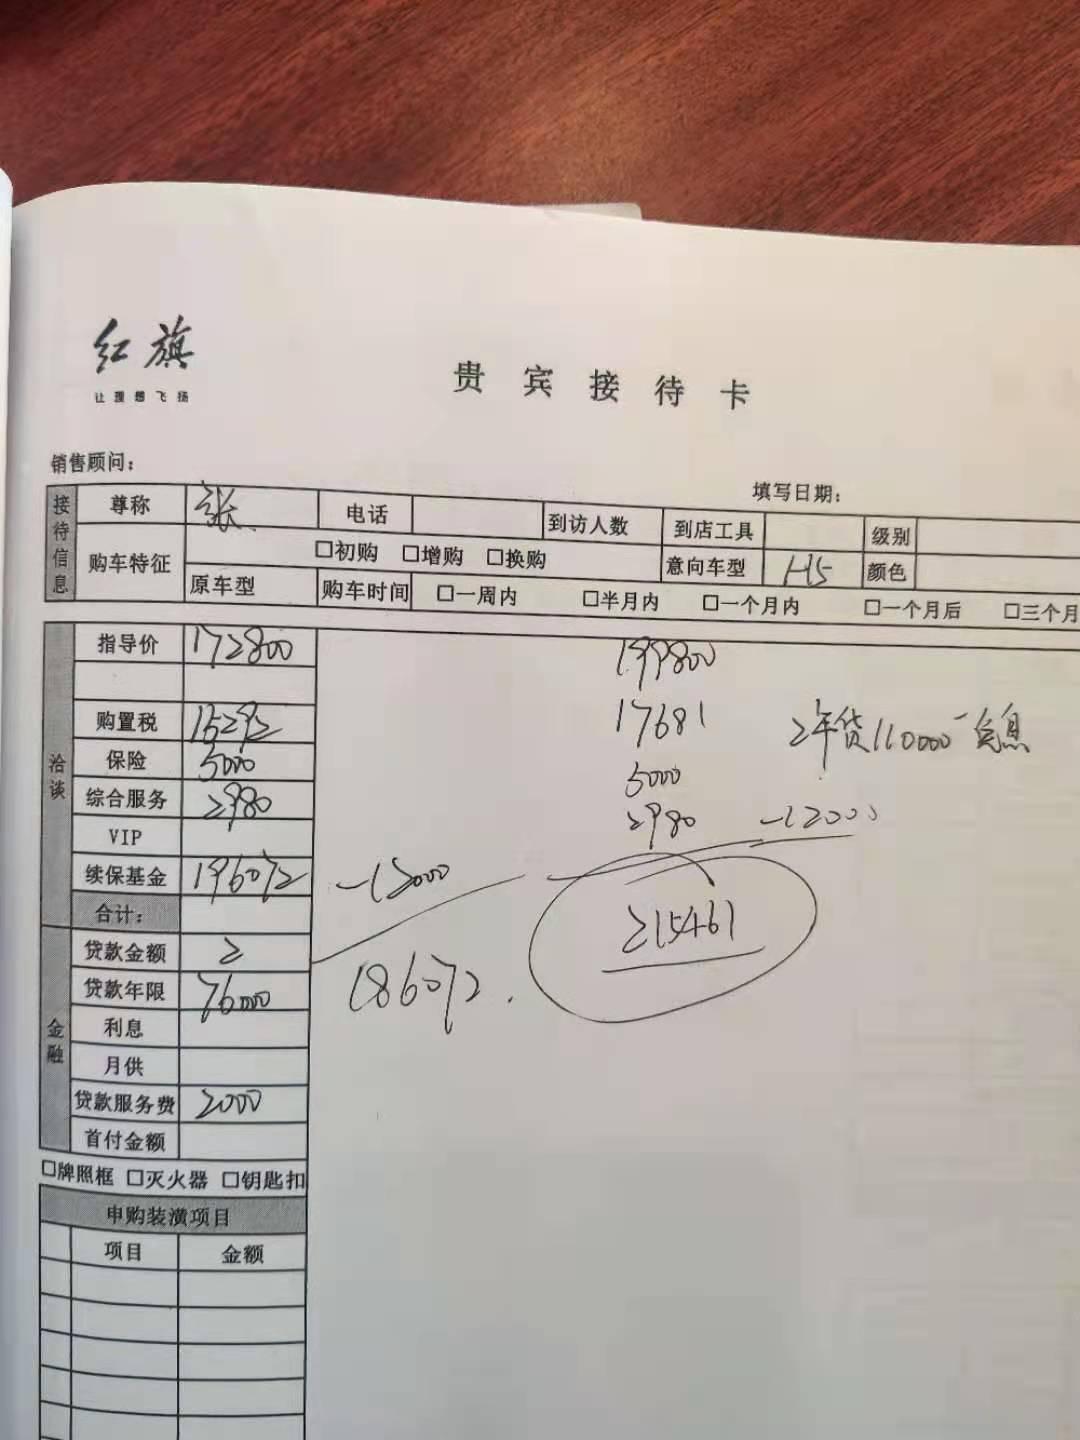 红旗
让理想飞扬
贵宾接待卡
销售顾问：
填写日期：
接待信息 尊称 张 电话 到访人数 到店工具 级别
购车特征 □初购 □增购 □换购 意向车型 H5 颜色
原车型 购车时间 □一周内 □半月内 □一个月内 □一个月后 □三个月
洽谈 指导价 172800 199800
购置税 15292 17681 2年贷110000
保险 5000 5000
综合服务 2980 2980 -12000
VIP
续保基金 196072 -12000
合计： 215461
金融 贷款金额 2
贷款年限 76000 186072.
利息
月供
贷款服务费 2000
首付金额
□牌照框 □灭火器 □钥匙扣
申购装潢项目
项目 金额